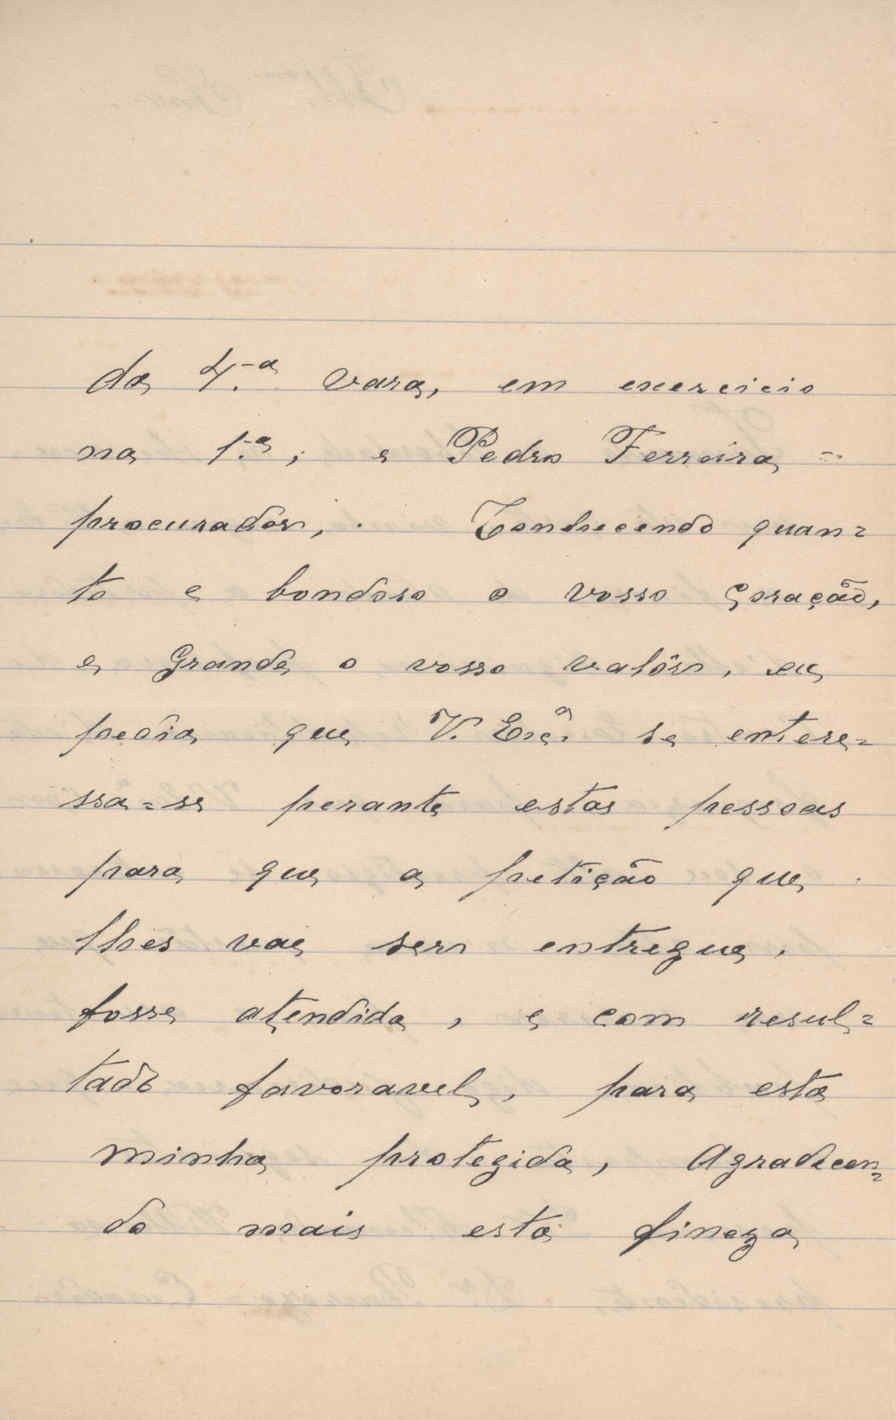 da 4.ª vara, em exercicio
na 1.ª; e Pedro Ferreira =
procurador,. Conhecendo quan=
to e bondoso o vosso Coração,
e grande o vosso valôr, eu
pedia que V. Exçª se entere=
ssa-se perante estas pessoas
para que a petição que
lhes vae ser entregue,
fosse atendida, e com resul=
tado favoravel, para esta
minha protegida, Agradecen=
do mais esta fineza